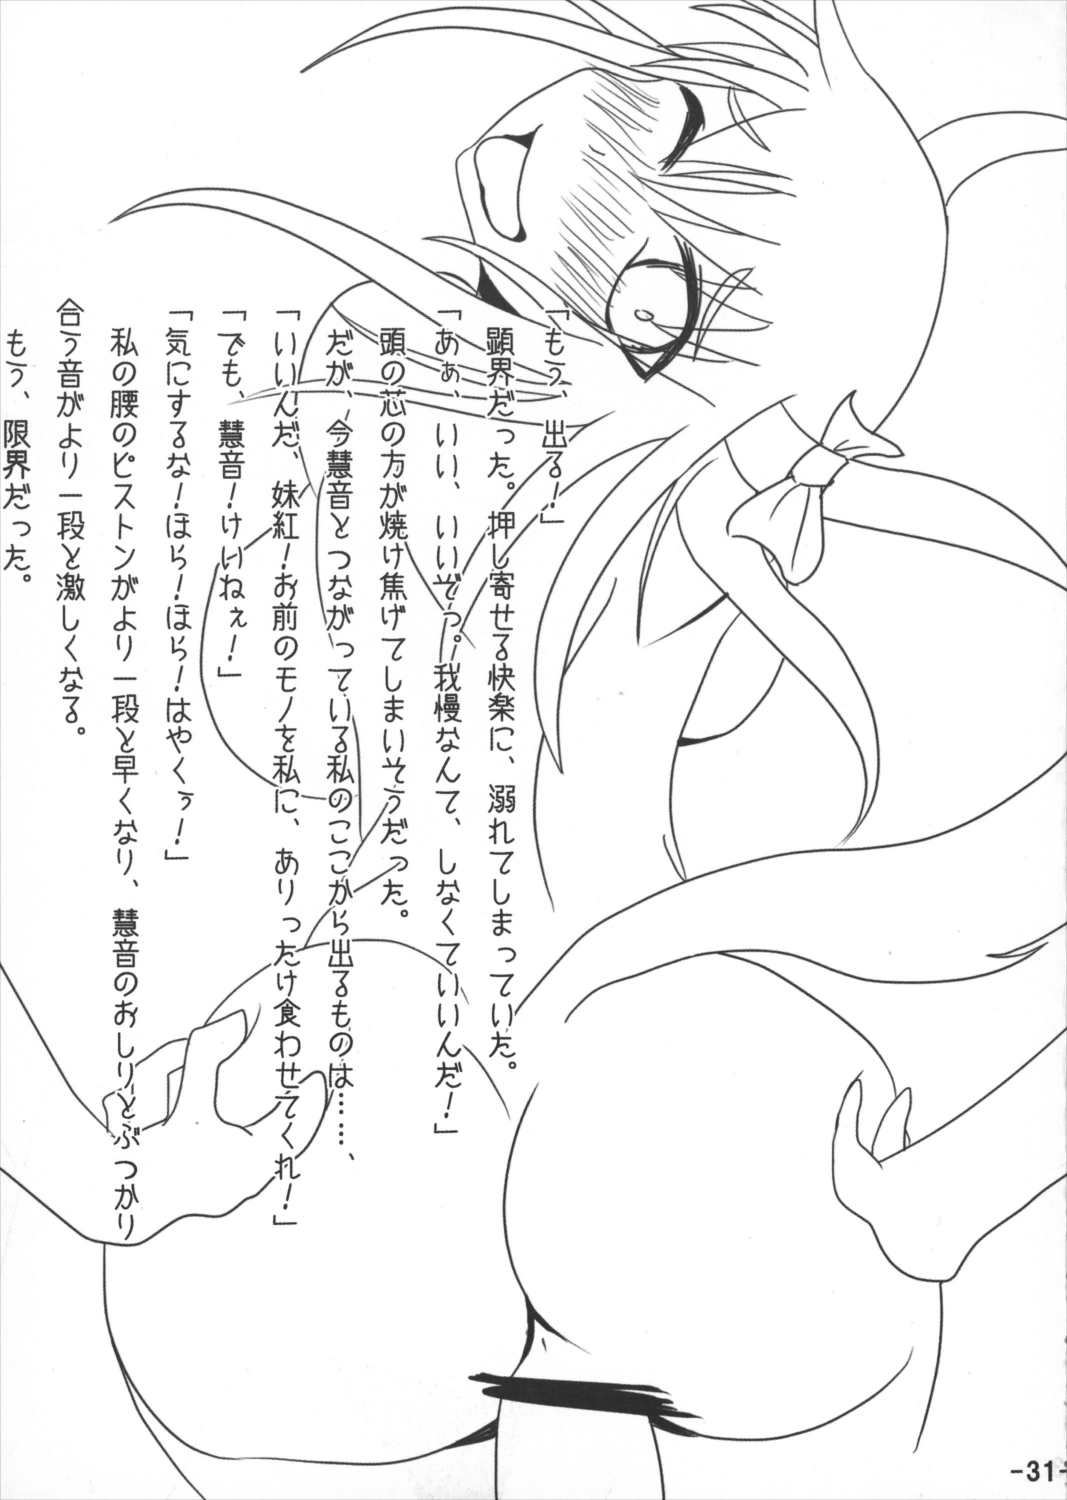 「もう、出る！」
顕界だった。押し寄せる快楽に、溺れてしまっていた。
「あぁ、いい、いいぞっ。我慢なんて、しなくていいんだ！」
頭の芯の方が焼け焦げてしまいそうだった。
だが、今慧音とつながっている私のここから出るものは……、
「いいんだ、妹紅！お前のモノを私に、ありったけ食わせてくれ！」
「でも、慧音！けいねぇ！」
「気にするな！ほら！ほら！はやくぅ！」
私の腰のピストンがより一段と早くなり、慧音のおしりとぶつかり
合う音がより一段と激しくなる。
もう、限界だった。
-31-